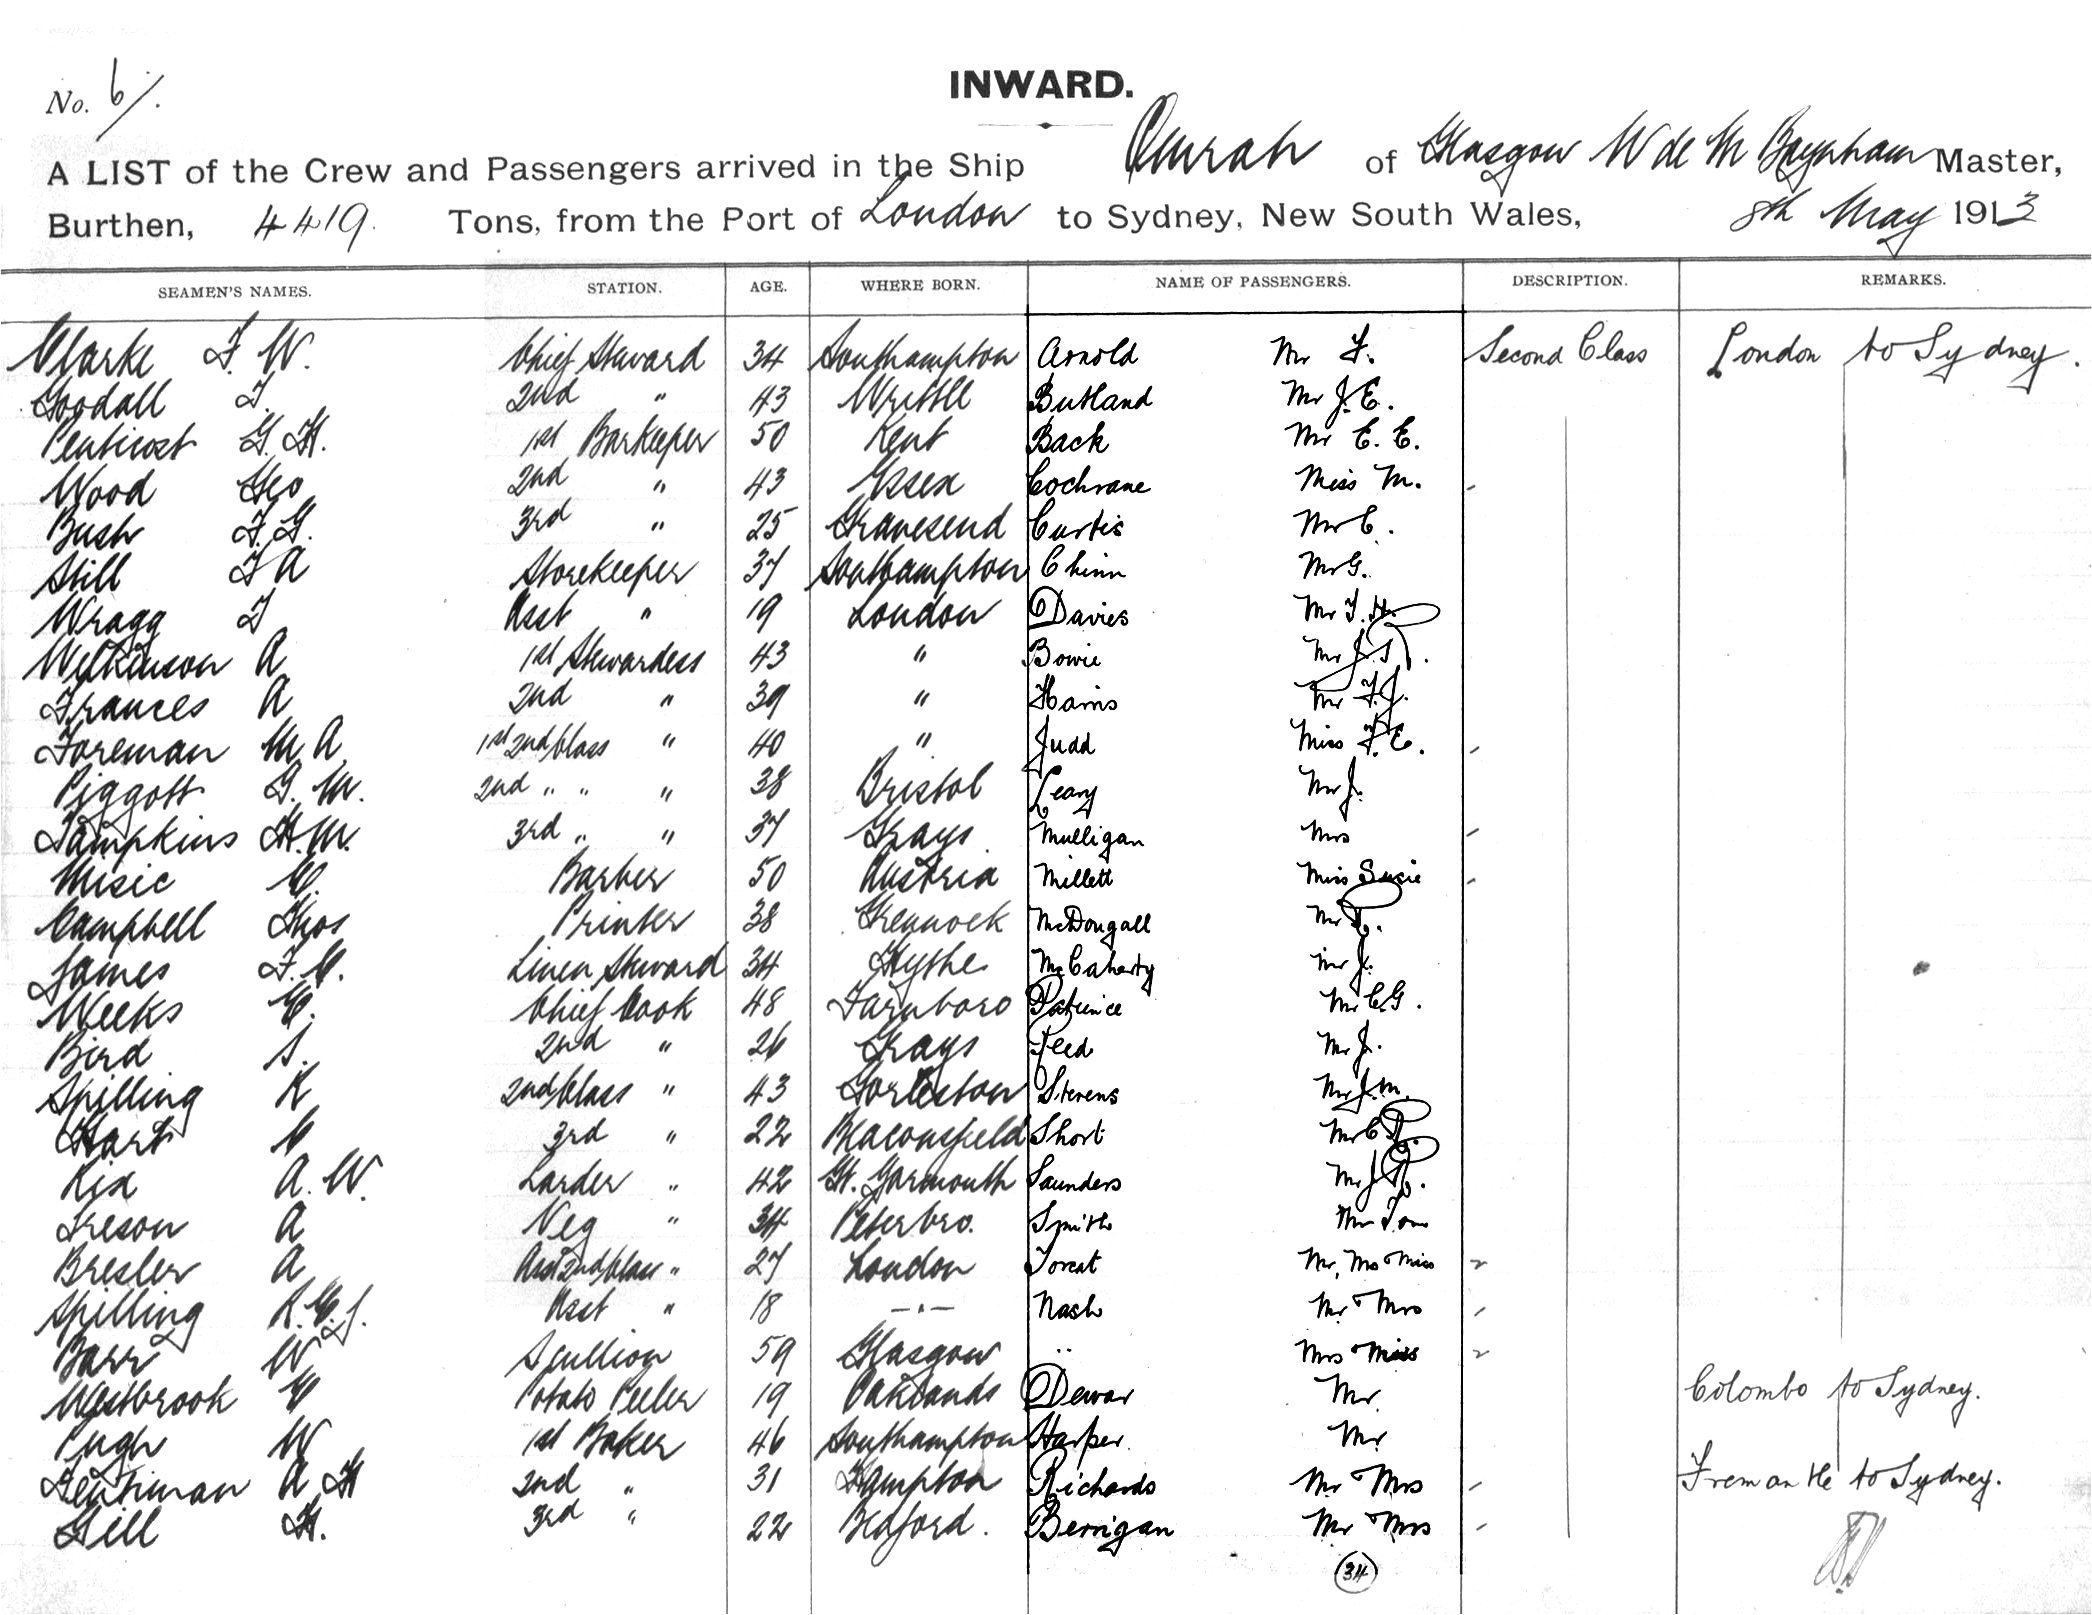 No. 6/.
INWARD.
A LIST of the Crew and Passengers arrived in the Ship Omrah of Glasgow W de M Baynham Master,
Burthen, 4419. Tons, from the Port of London to Sydney, New South Wales, 8th May 1913
SEAMEN'S NAMES. STATION. AGE. WHERE BORN. NAME OF PASSENGERS. DESCRIPTION. REMARKS.
Clarke F. W. Chief Steward 34 Southampton Arnold Mr F. Second Class London to Sydney.
Goodall F. 2nd " 43 Writtle Butland Mr J.E.
Penticost G. H. 1st Barkeeper 50 Kent Back Mr E. E.
Wood Geo 2nd " 43 Essex Cochrane Miss M.
Bush F. G. 3rd " 25 Gravesend Curtis Mr C.
Still F A Storekeeper 37 Southampton Chinn Mr G.
Wragg F Asst " 19 London Davies Mr T. H.
Wilkinson A 1st Stewardess 43 " Bowie Mr J.
Frances A 2nd " 39 " Harris Mr F.J.
Foreman M A 1st 2nd Class " 40 " Judd Miss F.E.
Piggott G. M. 2nd " " " 38 Bristol Leary Mr J.
Tampkins H. M. 3rd " " 37 Grays Mulligan Mrs
Misic C. Barber 50 Austria Millett Miss Susie
Campbell Thos Printer 38 Greenock McDougall Mr R.
James F. C. Linen Steward 34 Hythe McCaherty Mr J.
Weeks C. Chief Cook 48 Farnboro Patience Mr C.G.
Bird S. 2nd " 26 Grays Reed Mr J.
Spilling R 2nd Class " 43 Gorleston Stevens Mr J.M.
Hart C 3rd " 22 Beaconsfield Short Mr C R.
Rix A. W. Larder " 42 Gt. Yarmouth Saunders Mr J R.
Ireson A Veg " 34 Peterbro. Smith Mr Tom
Bresler A Asst 2nd Class " 27 London Mr, Mrs & Miss
Spilling R. C. J. Asst " 18 — " — Nash Mr & Mrs
Barr W Scullion 59 Glasgow " Mrs & Miss
Westbrook C Potato Peeler 19 Oaklands Dewar Mr Colombo to Sydney.
Pugh W 1st Baker 46 Southampton Harper Mr
Fentiman A H 2nd " 31 Hampton Richards Mr & Mrs Fremantle to Sydney.
Gill H. 3rd " 22 Bedford. Berrigan Mr & Mrs
34